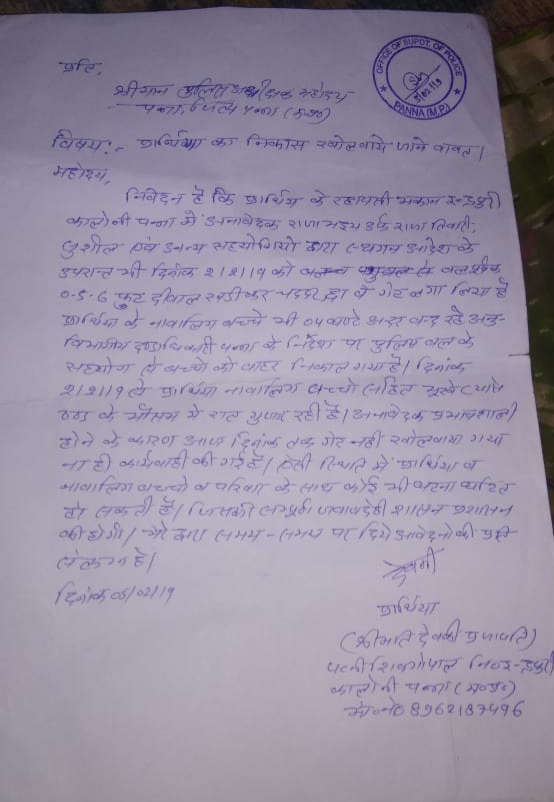 प्रति,
OFFICE OF SUPDT. OF POLICE
5/02/19
PANNA (M.P.)
श्रीमान पुलिस अधीक्षक महोदय
पन्ना जिला पन्ना (म.प्र.)
विषय:- प्रार्थिया का निकास खोलवाये जाने बावत।
महोदय,
निवेदन है कि प्रार्थिया के रहायसी मकान इन्द्रपुरी
कालोनी पन्ना में अनावेदक राजाभइया उर्फ राजा तिवारी,
सुशील एवं अन्य सहयोगियो द्वारा स्थगन आदेश के
उपरान्त भी दिनांक 2/2/19 को बलपूर्वक
0-5-6 फुट दीवाल खडीकर व गेट लगा लिया है
प्रार्थिया के नावालिग बच्चे भी 04 घण्टे अन्दर बन्द रहे अनु-
विभागीय दण्डाधिकारी पन्ना के निर्देश पर पुलिस बल के
सहयोग से बच्चो को बाहर निकाला गया है। दिनांक
2/2/19 से प्रार्थिया नावालिग बच्चो सहित भूखे प्यासे
ठण्ड के मौसम में रात गुजार रही है। अनावेदक प्रभावशाली
होने के कारण आज दिनांक तक गेट नही खोलवाया गया
ना ही कार्यवाही की गई है। ऐसी स्थिति में प्रार्थिया व
नावालिग बच्चो व परिवार के साथ कोई भी घटना घटित
हो सकती है। जिसकी सम्पूर्ण जवाबदेही शासन प्रशासन
की होगी। मेरे द्वारा समय-समय पर दिये आवेदनो की प्रति
संलग्न है।
दिनांक 05/02/19
प्रार्थिया
(श्रीमति देवकी प्रजापति)
पत्नी शिवगोपाल नि० इन्द्रपुरी
कालोनी पन्ना (म०प्र०)
मो०नं० 8962187496